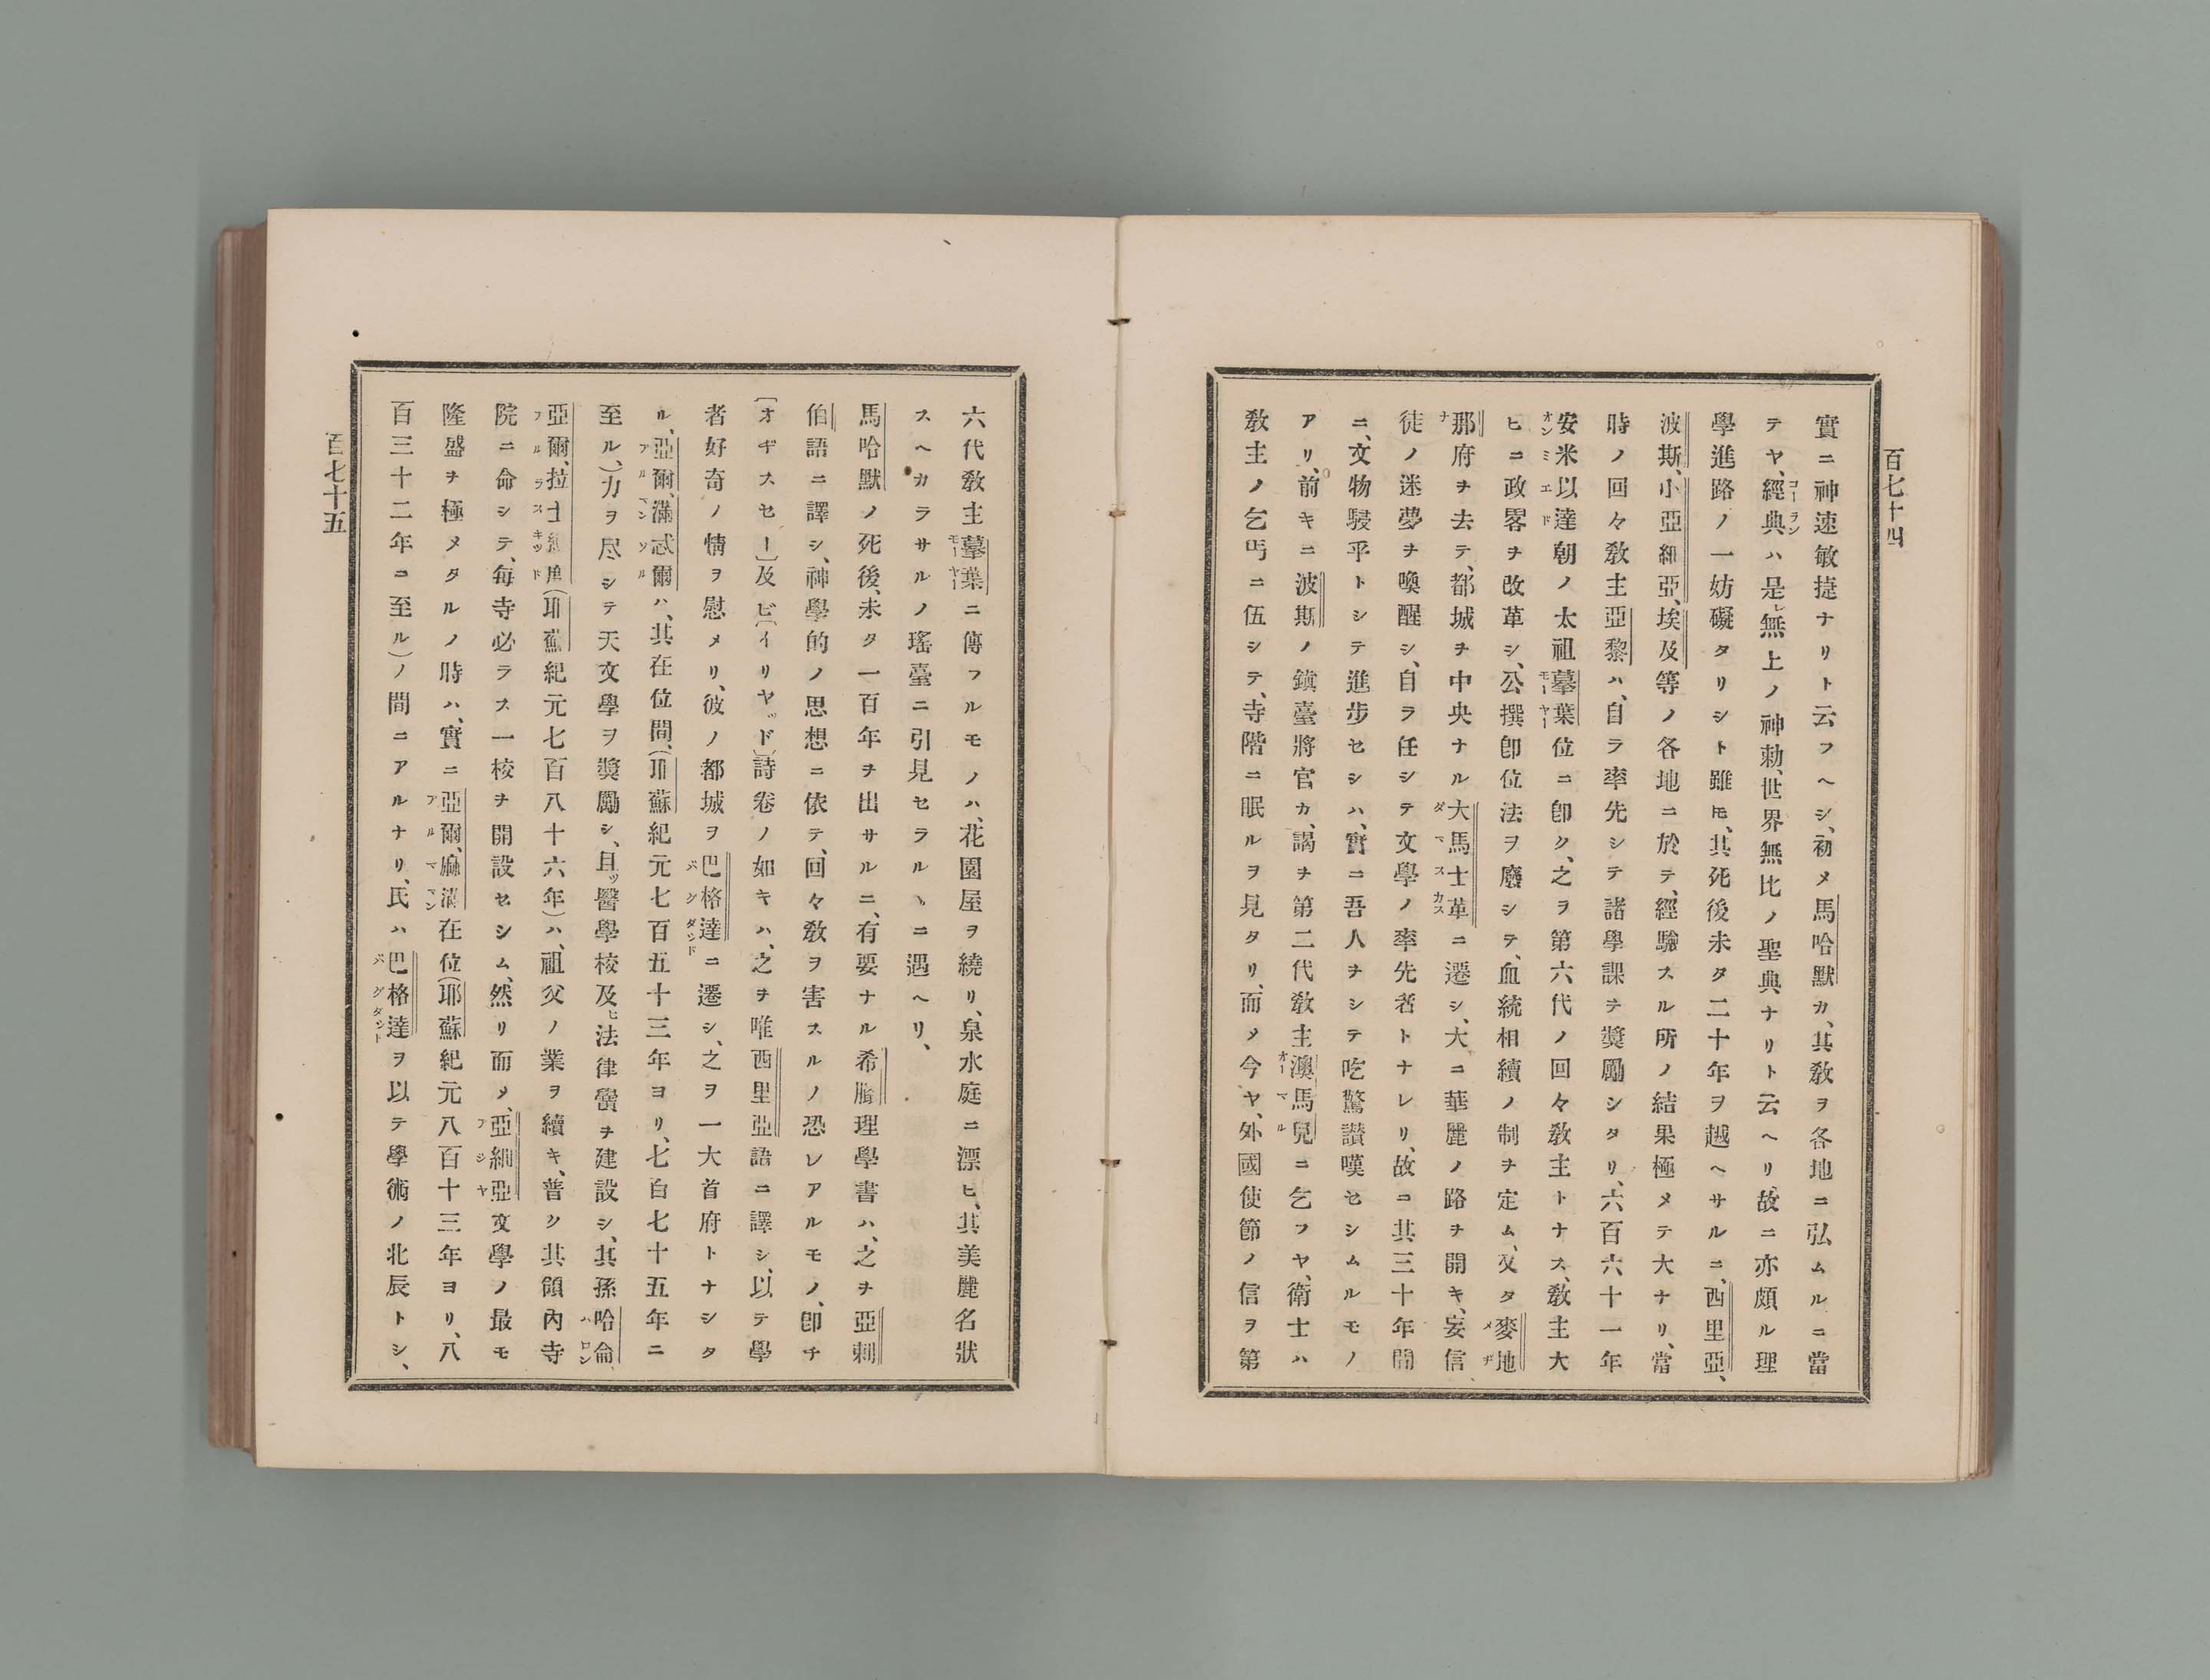 百七十四
實ニ神速敏捷ナリト云フヘシ、初メ馬哈默カ、其敎ヲ各地ニ弘ムルニ當
テヤ、經典ハ是レ無上ノ神勅、世界無比ノ聖典ナリト云ヘリ、故ニ亦頗ル理
學進路ノ一妨礙タリシト雖モ、其死後未タ二十年ヲ越ヘサルニ、西里亞、
波斯、小亞細亞、埃及等ノ各地ニ於テ、經驗スル所ノ結果極メテ大ナリ、當
時ノ回々敎主亞黎ハ、自ラ率先シテ諸學課ヲ奬勵シタリ、六百六十一年
安米以達朝ノ太祖摹葉位ニ卽ク、之ヲ第六代ノ回々敎主トナス、敎主大
ヒニ政畧ヲ改革シ、公撰卽位法ヲ廢シテ、血統相續ノ制ヲ定ム、又タ麥地
那府ヲ去テ、都城ヲ中央ナル大馬士革ニ遷シ、大ニ華麗ノ路ヲ開キ、妄信
徒ノ迷夢ヲ喚醒シ、自ラ任シテ文學ノ率先者トナレリ、故ニ其三十年間
ニ、文物駸乎トシテ進步セシハ、實ニ吾人ヲシテ吃驚讃嘆セシムルモノ
アリ、前キニ波斯ノ鎭臺將官カ、謁ヲ第二代敎主澳馬兒ニ乞フヤ、衛士ハ
敎主ノ乞丐ニ伍シテ、寺階ニ眠ルヲ見タリ、而メ今ヤ、外國使節ノ信ヲ第
六代敎主摹葉ニ傳フルモノハ、花園屋ヲ繞リ、泉水庭ニ漂ヒ、其美麗名狀
スヘカラサルノ瑤臺ニ引見セラルヽニ遇ヘリ、
馬哈默ノ死後、未タ一百年ヲ出サルニ、有要ナル希臘理學書ハ、之ヲ亞剌
伯語ニ譯シ、神學的ノ思想ニ依テ、回々敎ヲ害スルノ恐レアルモノ、卽チ
〔オヂスセー〕及ビ〔イリヤッド〕詩卷ノ如キハ、之ヲ唯西里亞語ニ譯シ、以テ學
者好奇ノ情ヲ慰メリ、彼ノ都城ヲ巴格達ニ遷シ、之ヲ一大首府トナシタ
ル、亞爾、滿忒爾ハ、其在位間、(耶蘇紀元七百五十三年ヨリ、七百七十五年ニ
至ル)力ヲ尽シテ天文學ヲ奬勵シ、且ツ醫學校及ヒ法律黌ヲ建設シ、其孫哈侖、
亞爾、拉士(耶蘇紀元七百八十六年)ハ、祖父ノ業ヲ續キ、普ク其領內寺
院ニ命シテ、每寺必ラス一校ヲ開設セシム、然リ而メ、亞細亞文學ノ最モ
隆盛ヲ極メタルノ時ハ、實ニ亞爾、麻滿在位(耶蘇紀元八百十三年ヨリ、八
百三十二年ニ至ル)ノ間ニアルナリ、氏ハ巴格達ヲ以テ學術ノ北辰トシ、
百七十五